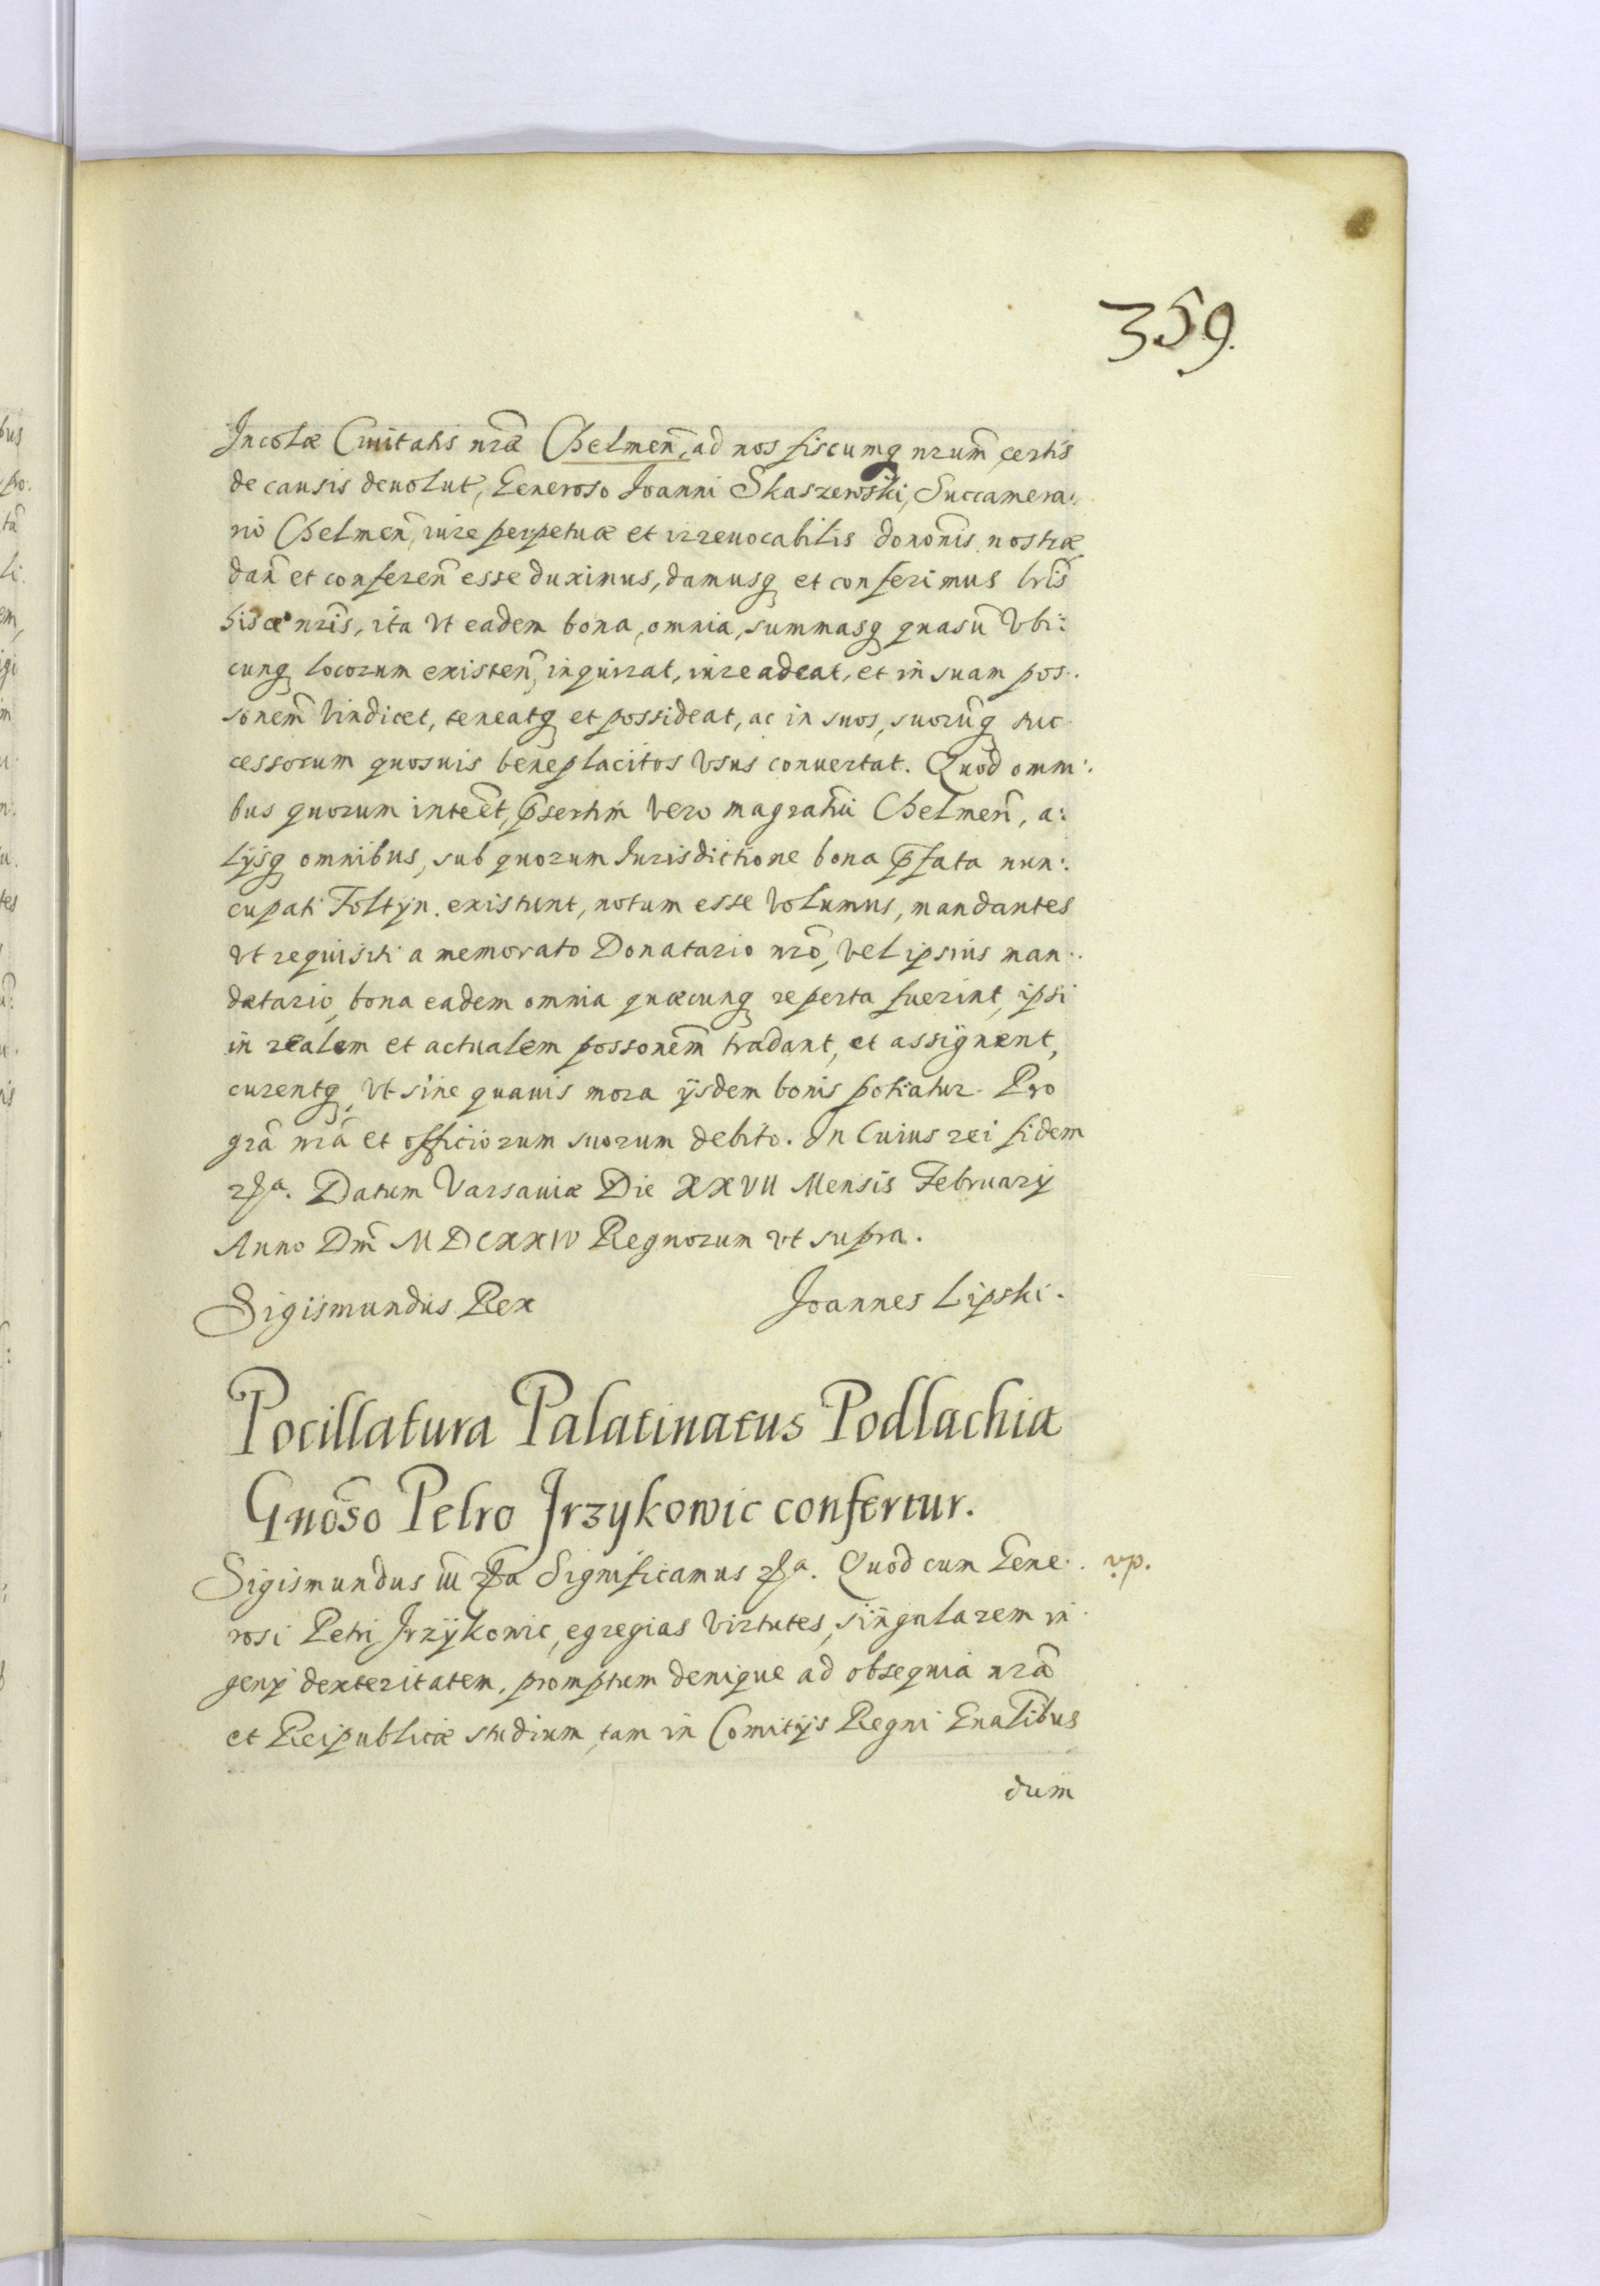 359.
Incolæ Ciuitatis nr̃æ Chelmen̄, ad nos fiscumq nrum̃ certis
de causis deuolut, Generoso Joanni Skaszewski, Succamera:
rio Chelmen̄, iure perpetuæ et irreuocabilis dononis̃ nostræ
dan̄ et conferen̄ esse duximus, damusq et conferimus lr̃is
hisce nr̃is, ita vt eadem bona, omnia, summasq quasuis̃ vbi:
cunq locorum existen̄, inquirat, iure adeat, et in suam pos:
sonem̃ vindicet, teneatq et possideat, ac in suos, suorum̃q suc
cessorum quosuis beneplacitos vsus conuertat. Quod omni:
bus quorum inteẽt, p̃sertim vero magratuĩ Chelmen̄, a:
lijsq omnibus, sub quorum Jurisdictione bona p̃fata nun:
cupati Foltyn. existunt, notum esse volumus, mandantes
vt requisiti a memorato Donatario nrõ, vel ipsius man:
datario, bona eadem omnia quæcunq reperta fuerint, ipsi
in realem et actualem possonem̃ tradant, et assignent,
curentq, vt sine quauis mora ijsdem bonis potiatur. Pro
grã nrã et officiorum suorum debito. In Cuius rei fidem
etca. Datum Varsauiæ Die XXVII Mensis February
Anno Dm̃ MDCXXIV Regnorum vt supra.
Sigismundus Rex Joannes Lipski.
Pocillatura Palatinatus Podlachia
Gnõso Petro Jrzykowic confertur.
Sigismundus III etca Significamus etca. Quod cum Gene: vp.
rosi Petri Jrzykowic, egregias virtutes, singularem in
genij dexteritatem, promptum denique ad obsequia nrã
et Reipublicæ studium, tam in Comitijs Regni Gnalibus̃
dum